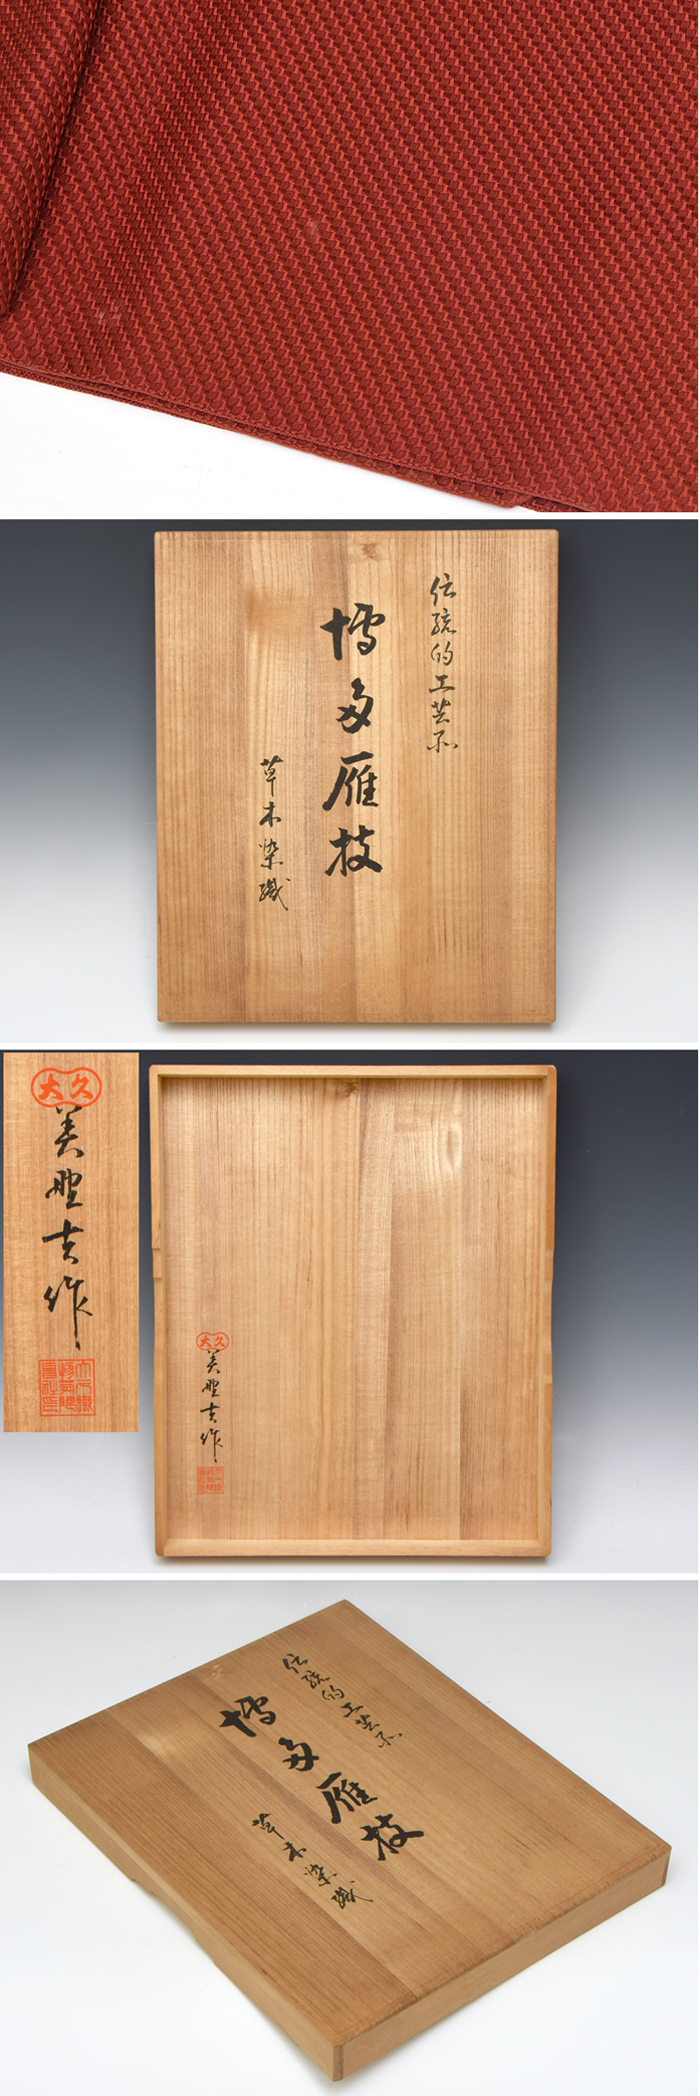 伝統的工芸品
博多雁枝
草木染織
大久
美野吉作
大久
美野吉作
伝統的工芸品
博多雁枝
草木染織